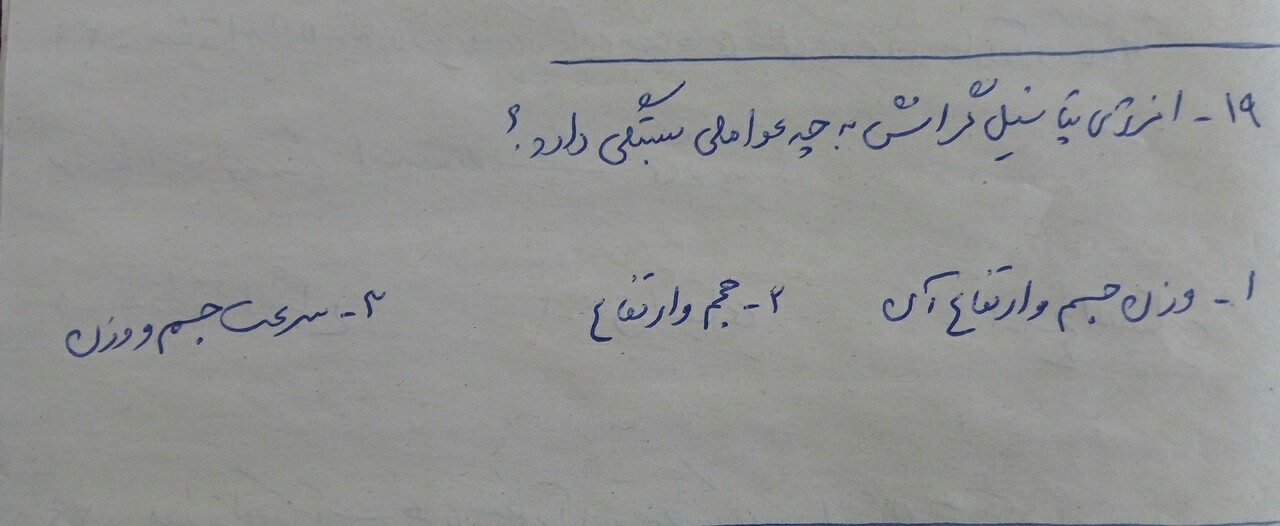 ۱۹- انرژی پتانسیل گرانش به چه عواملی بستگی دارد؟
۱- وزن جسم و ارتفاع آن ۲- حجم و ارتفاع ۳- سرعت جسم و وزن